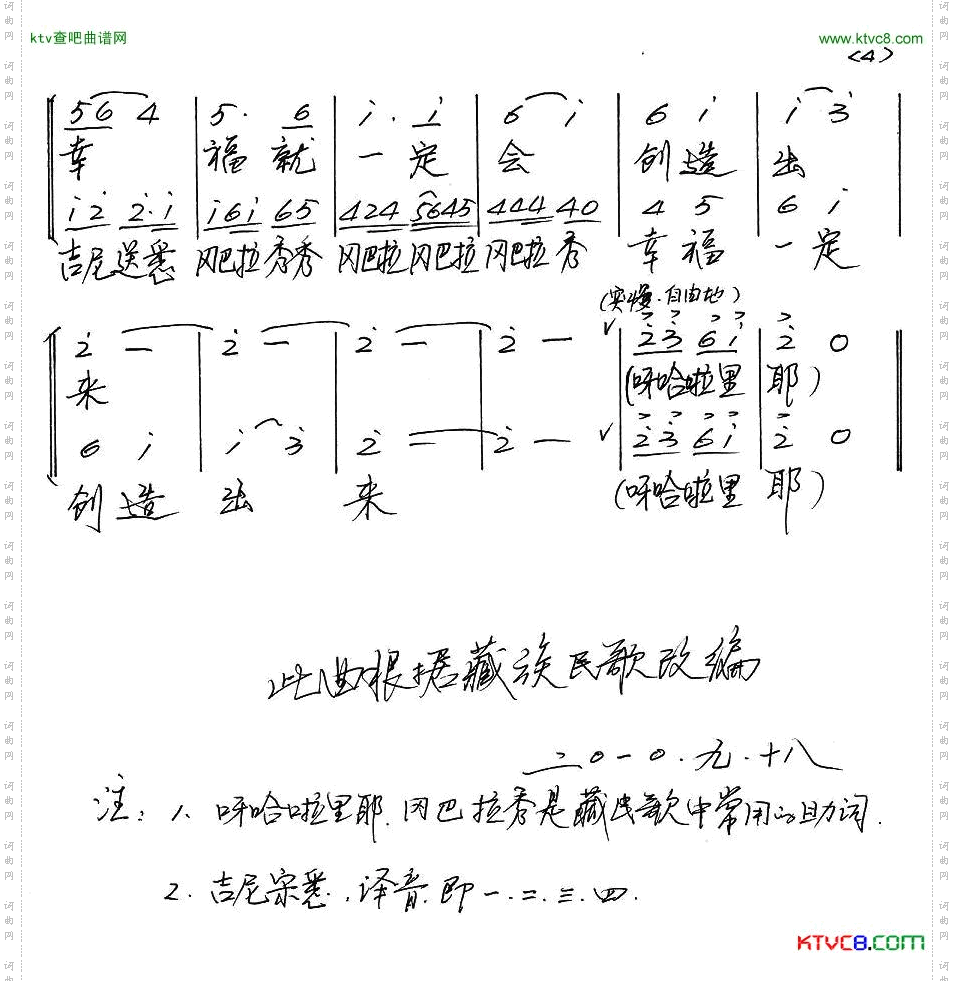 ktv查吧曲谱网 www.ktvc8.com
<4>
5 6 4 | 5· 6 | i· i | 6 i | 6 i | i 3̇
幸 福 就 一 定 会 创 造 出
i 2̇ 2̇·i | i6i 65 | 424 5645 | 444 40 | 4 5 | 6 i
吉尼送悉 冈巴拉秀秀 冈巴拉冈巴拉 冈巴拉 秀 幸 福 一 定
(突慢·自由地)
2̇ — | 2̇ — | 2̇ — | 2̇ — ∨ | 2̇3̇ 6i | 2̇ 0
来 (呀哈啦里 耶)
6 i | i 3̇ | 2̇ — | 2̇ — ∨ | 2̇3̇ 6i | 2̇ 0
创 造 出 来 (呀哈啦里 耶)
此曲根据藏族民歌改编
二〇一〇.九.十八
注: 1、呀哈啦里耶.冈巴拉秀是藏民歌中常用的助词.
2.吉尼宗悉.,译音.即一.二.三.四.
KTVC8.COM
词曲网